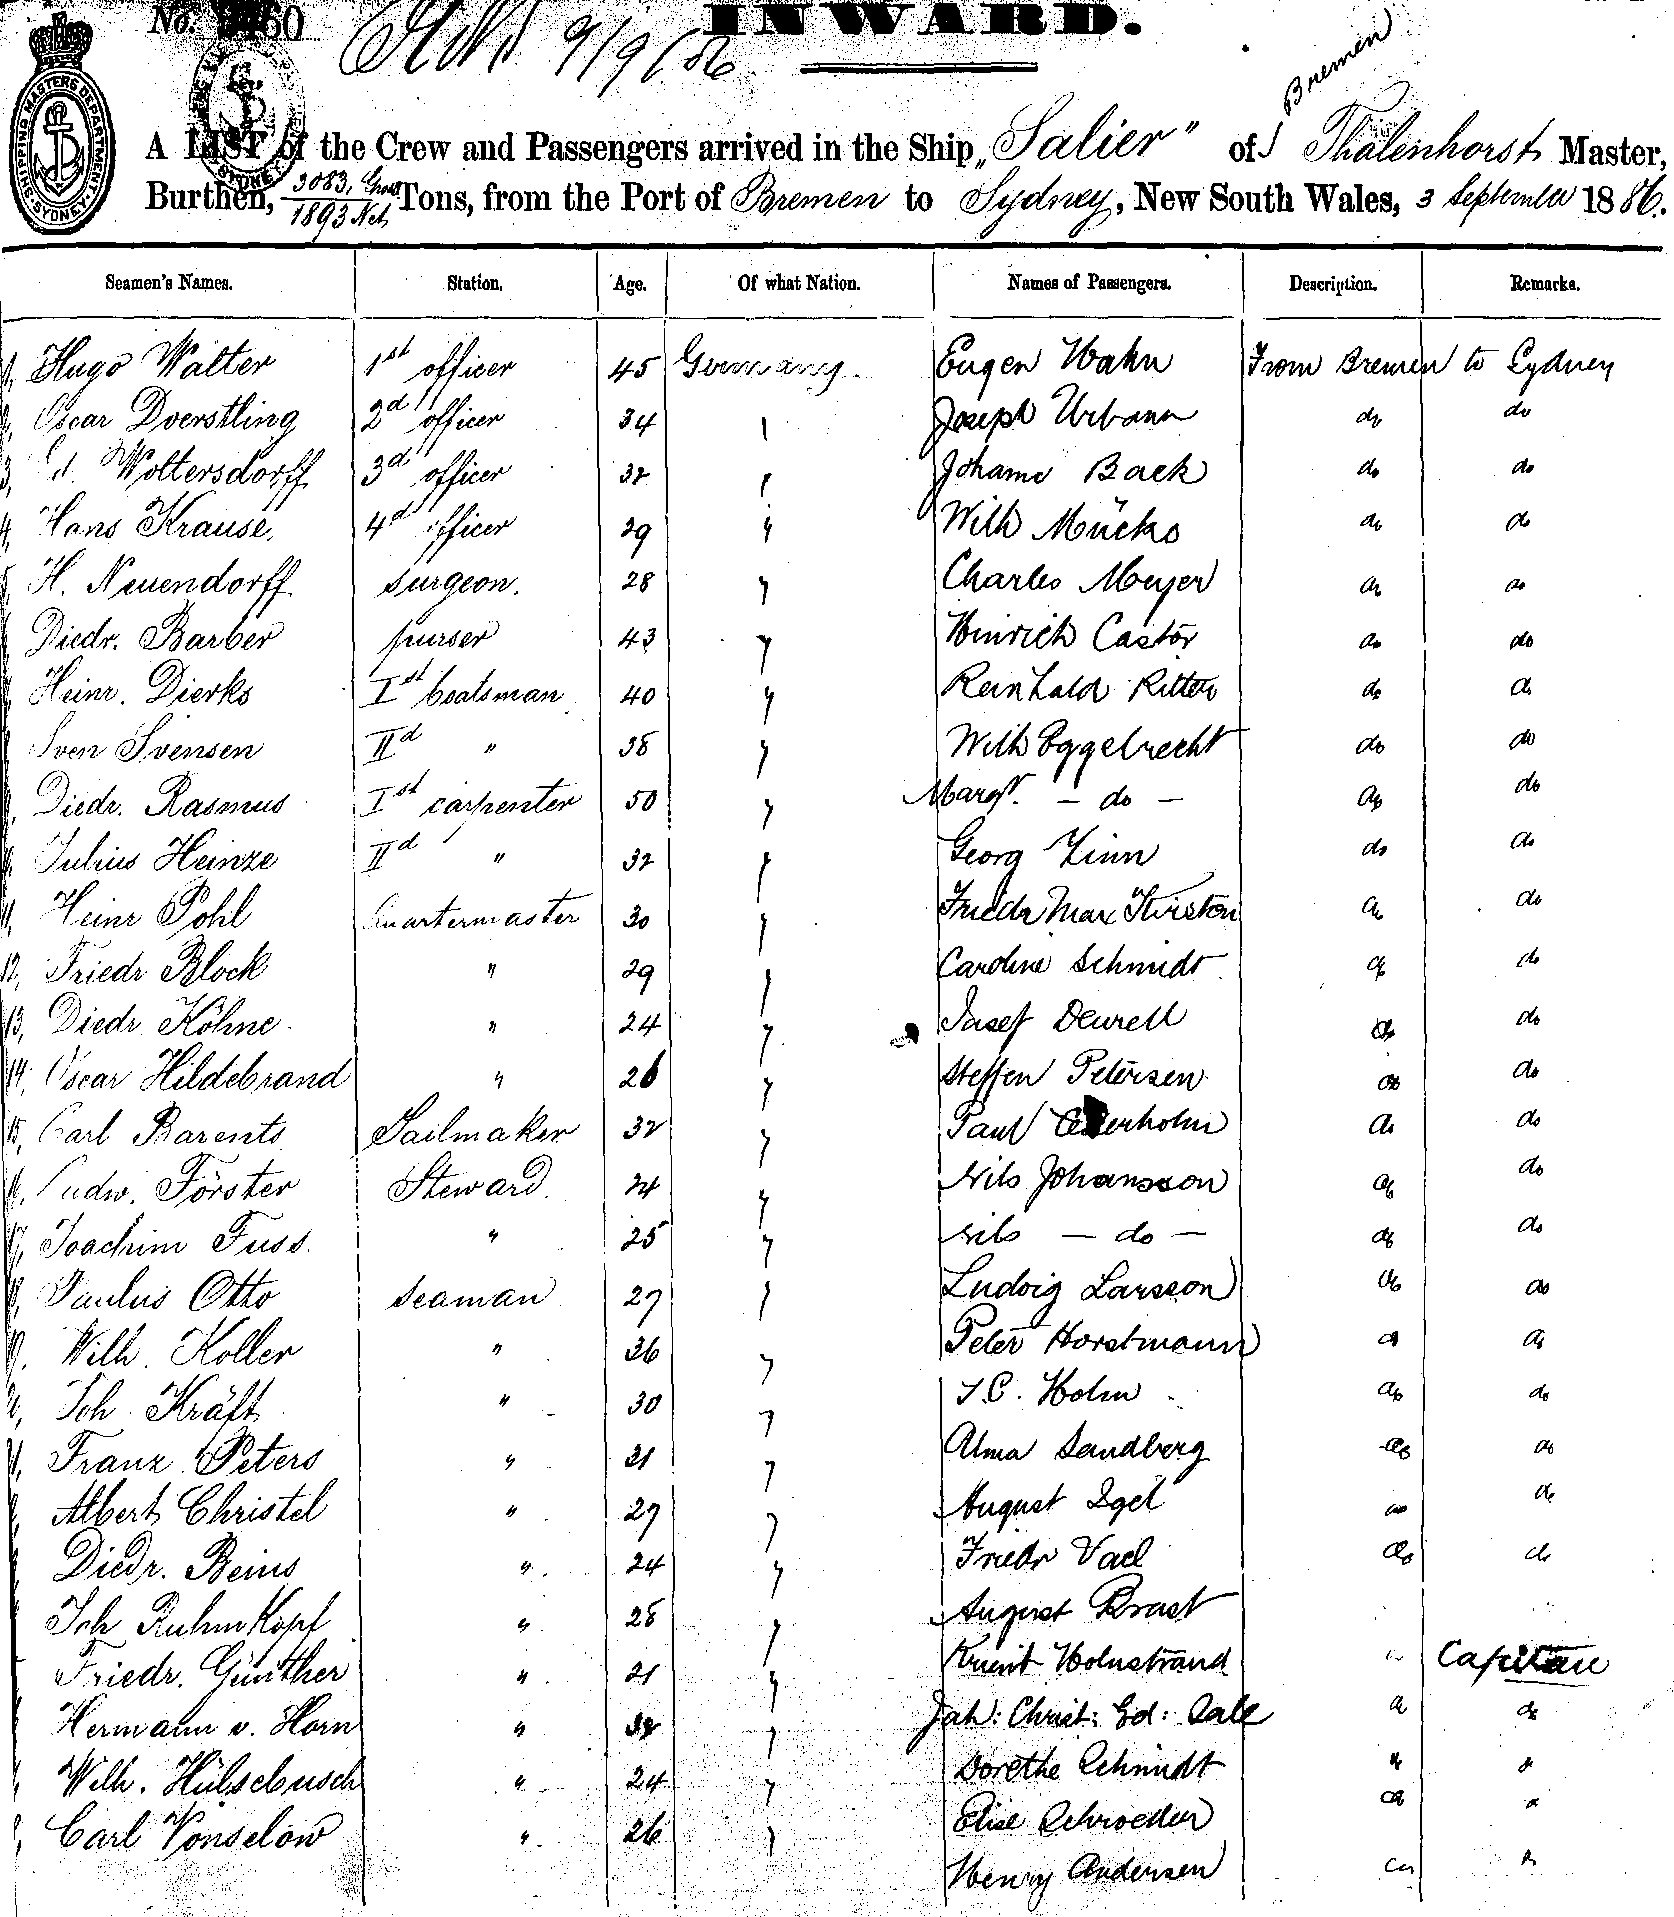 No.
INWARD.
9/9/86
SHIPPING MASTERS DEPARTMENT SYDNEY
Bremen
A LIST of the Crew and Passengers arrived in the Ship „Salier" of Thalenhorst Master,
Burthen, 3083, Gross 1893 Net, Tons, from the Port of Bremen to Sydney, New South Wales, 3 September 1886.
Seamen's Names. Station. Age. Of what Nation. Names of Passengers. Description. Remarks.
1, Hugo Walter 1st officer 45 Germany. Eugen Hahn From Bremen to Sydney
2, Oscar Doerstling 2d officer 34 " Joseph Urbann do do
3, Woltersdorff 3d officer 32 " Johann Back do do
4, Hans Krause, 4d officer 29 " Wilh Mücks do do
5, H. Neuendorff surgeon. 28 " Charles Meyer do do
Diedr. Barber purser 43 " Hinrich Castor do do
Heinr. Dierks Ist boatsman 40 " Reinhald Ritter do do
Sven Svensen IId " 38 " Wilh Eggebrecht do do
Diedr. Rasmus Ist carpenter 50 " Margt. - do - do do
Julius Heinze IId " 32 " Georg Zinn do do
11, Heinr Pohl Quartermaster 30 " Friedr Max Kirsten do do
12, Friedr Block " 29 " Caroline Schmidt do do
13, Diedr. Köhne " 24 " Josef do do
14, Oscar Hildebrand " 26 " Steffen Petersen do do
15, Carl Barents Sailmaker 32 " Paul do do
16, Ludw. Förster Steward 24 " Nils Johansson do do
17, Joachim Fuss. " 25 " Nils - do - do do
18, Paulus Otto seaman 27 " Ludvig Larsson do do
19, Wilh. Koller " 36 " Peter Horstmann do do
Joh. Kräft " 30 " Holm do do
Franz Peters " 21 " Alma Sandberg do do
Albert Christel " 27 " August Igel do do
Diedr. Beins " 24 " Friedr Vael do do
Joh Ruhmkopf " 28 " August Brast
Friedr. Günther " 21 " Holmstrand " Capitan
Hermann v. Horn " " Joh: Christ: Ed: do do
Wilh. Hülsebusch " 24 " Dorethe Schmidt do do
Carl Vonselow " 26 " Elise Schroeder do do
Henry Andersen do do